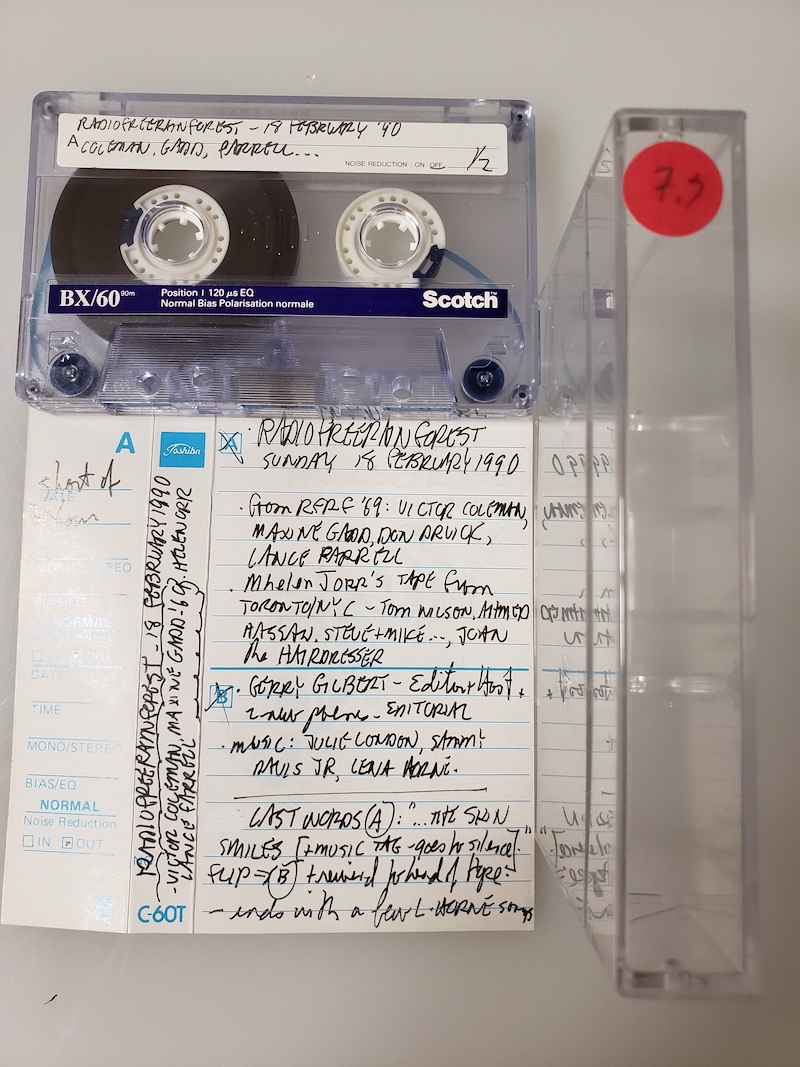 RADIOFREERAINFOREST - 18 FEBRUARY '90
A COLEMAN, GADD, FARRELL...
NOISE REDUCTION ON OFF 1/2
BX/60 90m
Position I 120 µs EQ
Normal Bias Polarisation normale
Scotch™
7.5
A
short of
DATE
TIME
MONO/STEREO
BIAS/EQ
NORMAL
Noise Reduction
IN OUT
DATE
TIME
MONO/STEREO
BIAS/EQ
NORMAL
Noise Reduction
IN OUT
Toshiba
RADIOFREERAINFOREST - 18 FEBRUARY 1990
- VICTOR COLEMAN, MAXINE GADD: '69. HELEN ORR
LANCE FARRELL
C-60T
A · RADIOFREERAINFOREST
SUNDAY 18 FEBRUARY 1990
· from RFRF '69: VICTOR COLEMAN,
MAXINE GADD, DON DRUICK,
LANCE FARRELL
· Mhelen JORR'S TAPE from
TORONTO/NYC - TOM WILSON, AHMED
HASSAN, STEVE + MIKE..., JOHN
the HAIRDRESSER
B · GERRY GILBERT - Editor + Host +
2 new poems - EDITORIAL
· MUSIC: JULIE LONDON, SAMMY
DAVIS JR, LENA HORNE.
LAST WORDS (A): "...THE SKIN
SMILES [+ MUSIC TAG - goes to silence]."
FLIP => (B) + rewind to head of tape:
- ends with a few L. HORNE songs